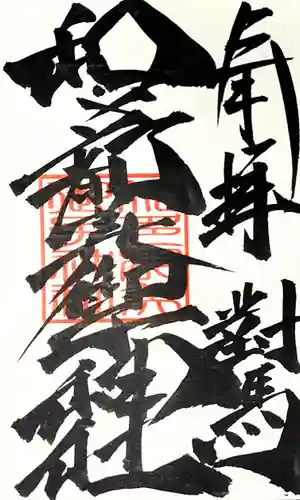 奉拝 對馬
和多都美神社